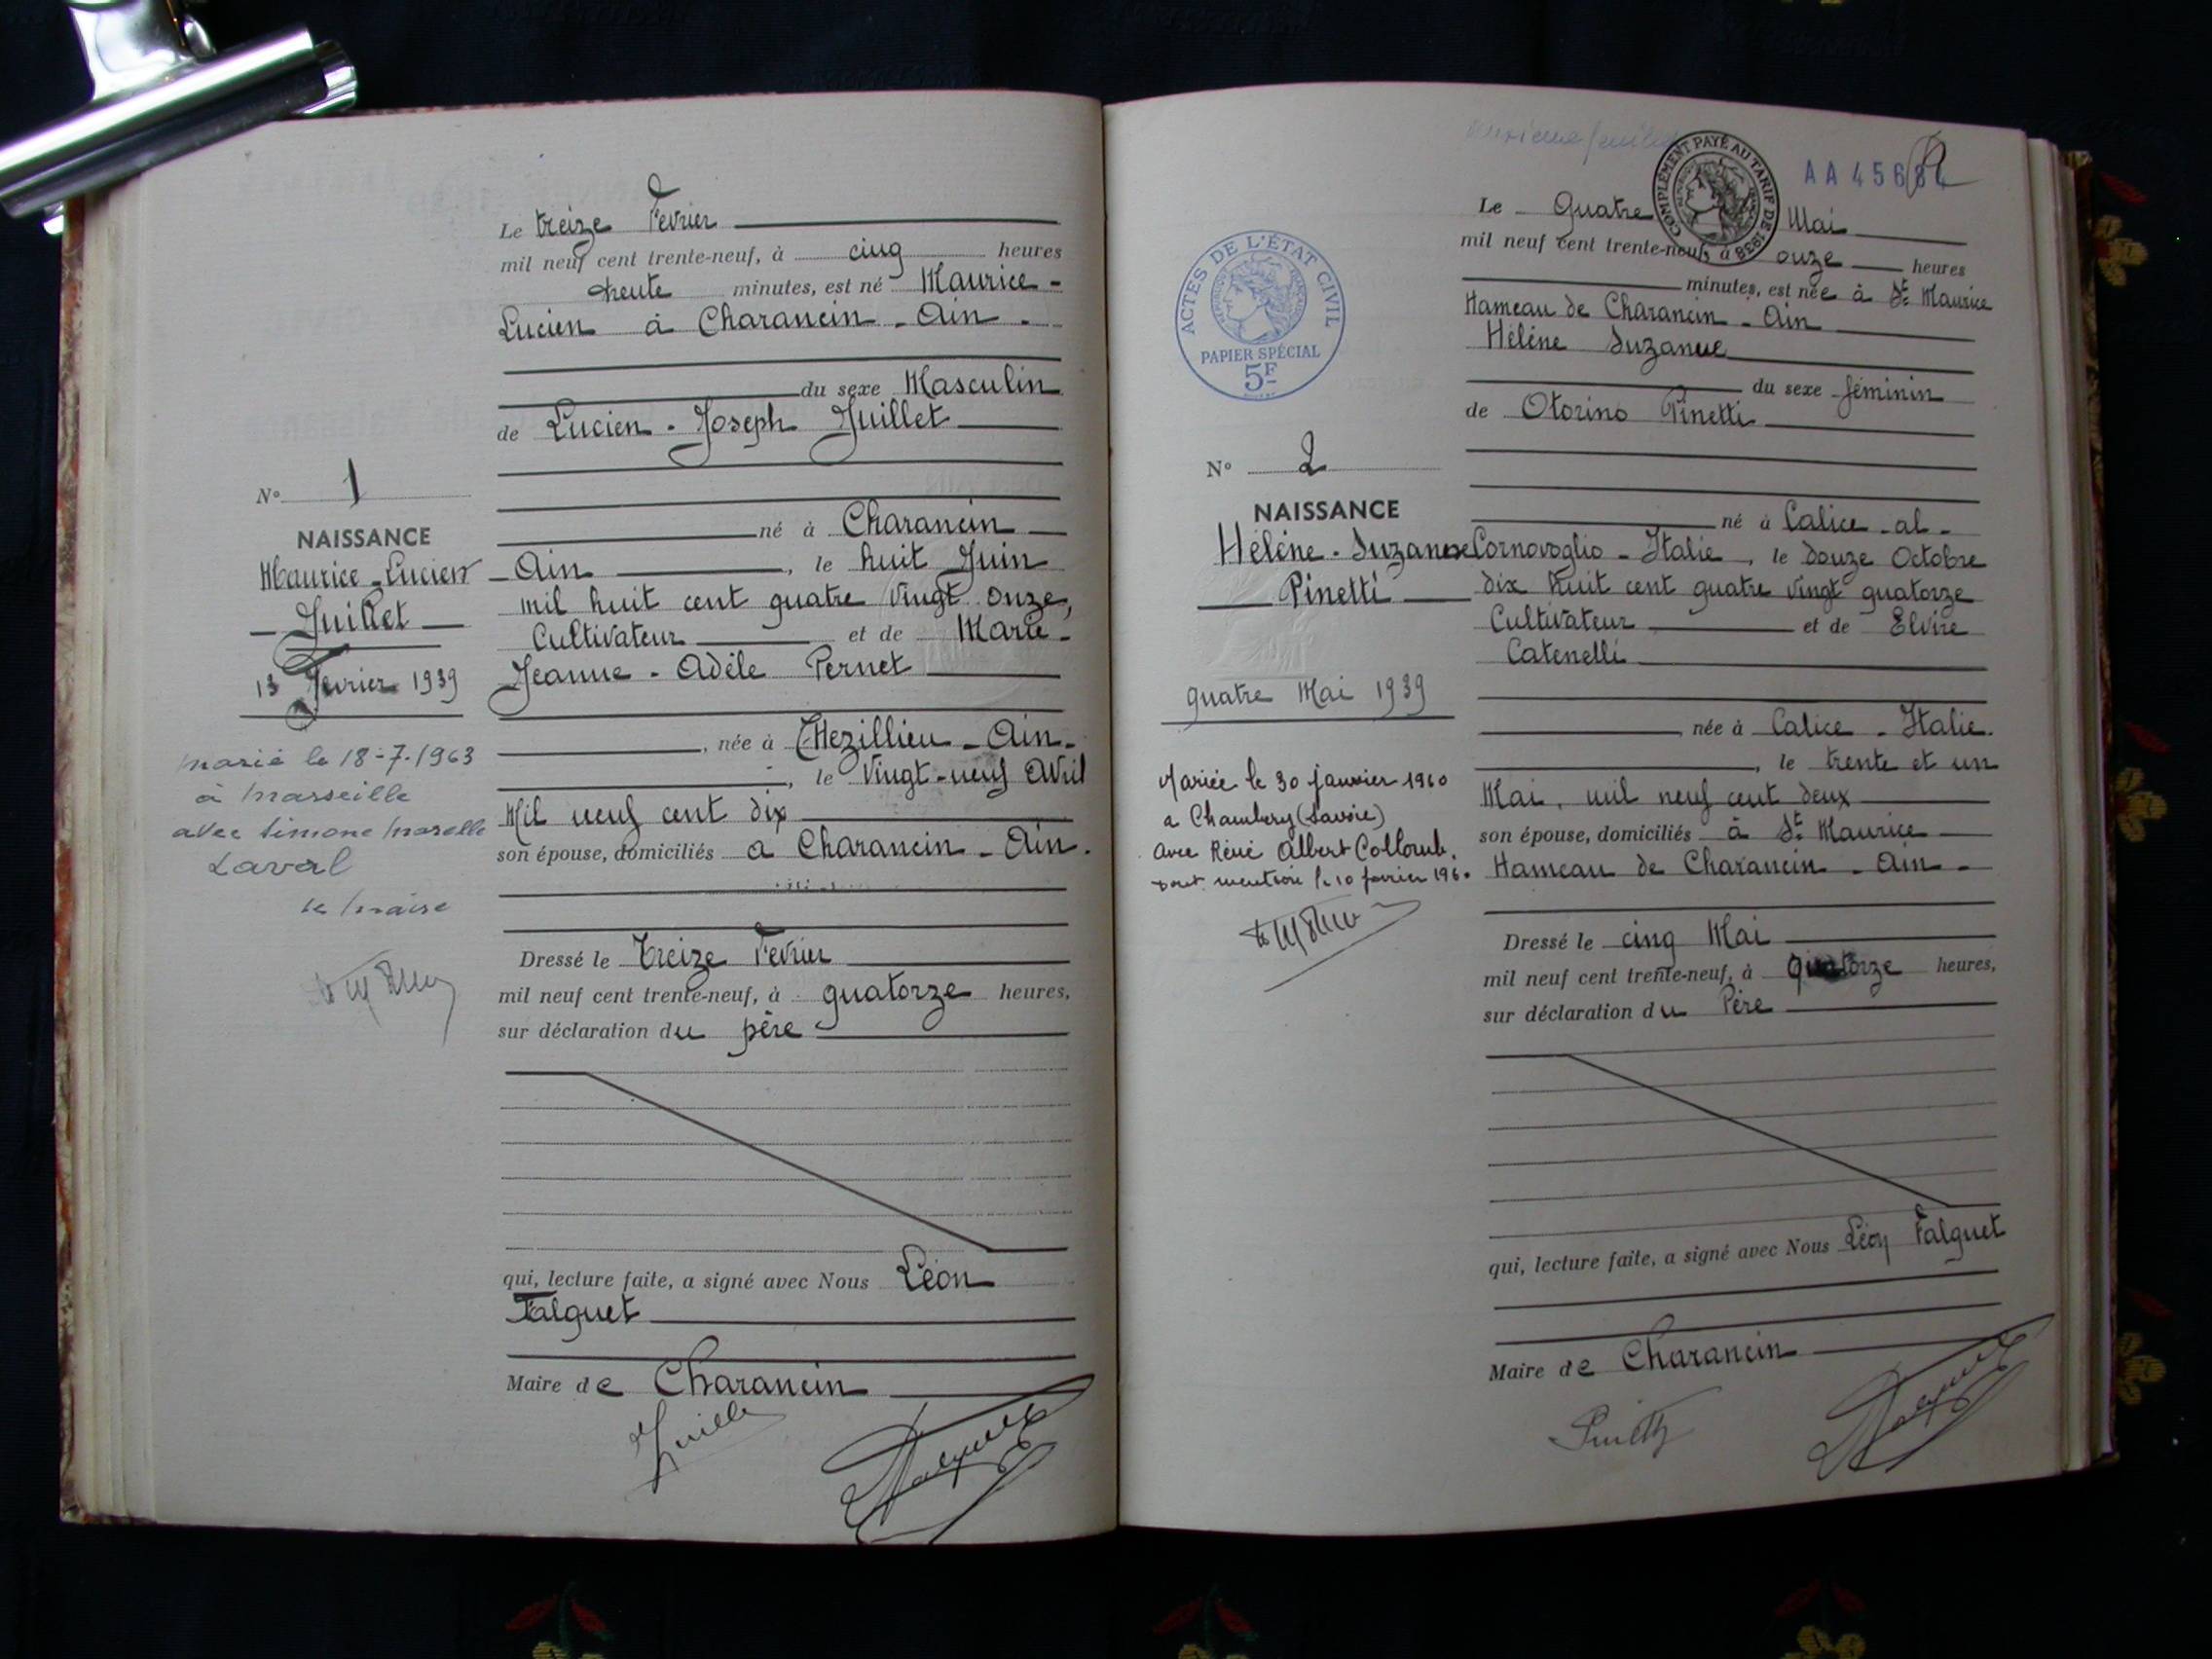 Le treize Février
mil neuf cent trente-neuf, à cinq heures
trente minutes, est né Maurice-
Lucien à Charancin - Ain -
du sexe Masculin
de Lucien - Joseph Juillet
né à Charancin
- Ain, le huit Juin
mil huit cent quatre vingt onze,
Cultivateur et de Marie-
Jeanne - Adèle Pernet
, née à Thézillieu - Ain -
, le Vingt-neuf Avril
Mil neuf cent dix
son épouse, domiciliés à Charancin - Ain.
Dressé le Treize Février
mil neuf cent trente-neuf, à quatorze heures,
sur déclaration du père
qui, lecture faite, a signé avec Nous Léon
Falguet
Maire de Charancin
Juillet
Falguet
N° 1
NAISSANCE
Maurice-Lucien
Juillet
13 Février 1939
marié le 18-7-1963
à Marseille
avec Simone
Laval
le Maire
AA 456
COMPLÉMENT PAYÉ AU TARIF DE 1938
Le Quatre Mai
mil neuf cent trente-neuf, à onze heures
minutes, est née à St Maurice
Hameau de Charancin - Ain
Hélène Suzanne
du sexe féminin
de Otorino Pinetti
né à Calice - al -
Cornovoglio - Italie, le douze Octobre
dix huit cent quatre vingt quatorze
Cultivateur et de Elvire
Catenelli
, née à Calice - Italie.
, le trente et un
Mai, mil neuf cent deux
son épouse, domiciliés à St Maurice
Hameau de Charancin - Ain -
Dressé le cinq Mai
mil neuf cent trente-neuf, à quatorze heures,
sur déclaration du Père
qui, lecture faite, a signé avec Nous Léon Falguet
Maire de Charancin
Pinetti
Falguet
ACTES DE L'ÉTAT CIVIL
PAPIER SPÉCIAL
5F
N° 2
NAISSANCE
Hélène - Suzanne
Pinetti
quatre Mai 1939
Mariée le 30 janvier 1960
à Chambery (Savoie)
avec Réné Albert Collomb.
dont mention le 10 février 1960